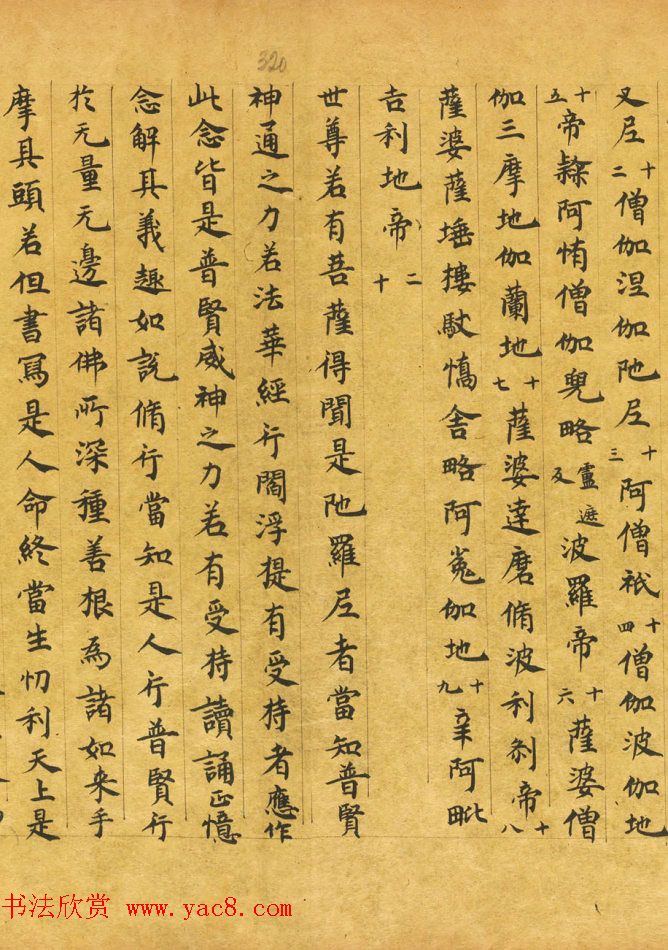 320
叉尼十二僧伽涅伽陁尼十三阿僧祇十四僧伽波伽地
十五帝隸阿惰僧伽兜略盧遮反波羅帝十六薩婆僧
伽三摩地伽蘭地十七薩婆達磨脩波利剎帝十八
薩婆薩埵摟馱憍舍略阿㝹伽地十九辛阿毗
吉利地帝二十
世尊若有菩薩得聞是陁羅尼者當知普賢
神通之力若法華經行閻浮提有受持者應作
此念皆是普賢威神之力若有受持讀誦正憶
念解其義趣如說脩行當知是人行普賢行
於无量无邊諸佛所深種善根為諸如来手
摩其頭若但書寫是人命終當生忉利天上是
书法欣赏 www.yac8.com